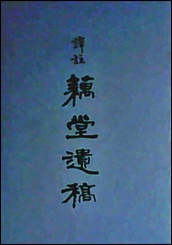 譯註
藕堂遺稿